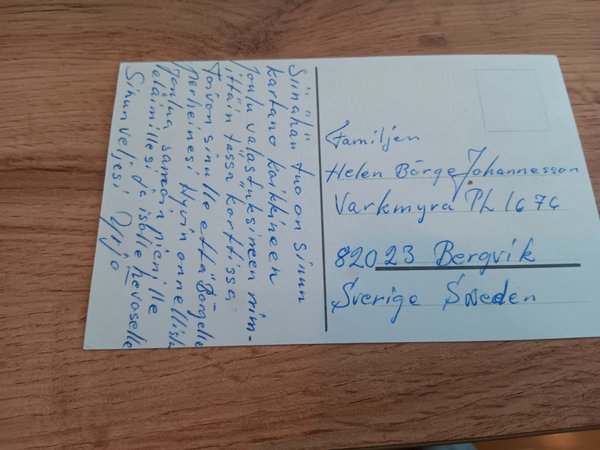 Siinähän tuo on sinun
kartano kaikkineen
joulu valastuksineen nim-
ittäin tässä kortissa,
Toivon sinulle että Börgelle
perheinesi Hyvin onnellista
joulua, samoin pienille
eläimillesi ja isolle hevoselle
Sinun veljesi Yrjö
Familjen
Helen Börge Johannesson
Varkmyra PL 1676
82023 Bergvik
Sverige Sweden